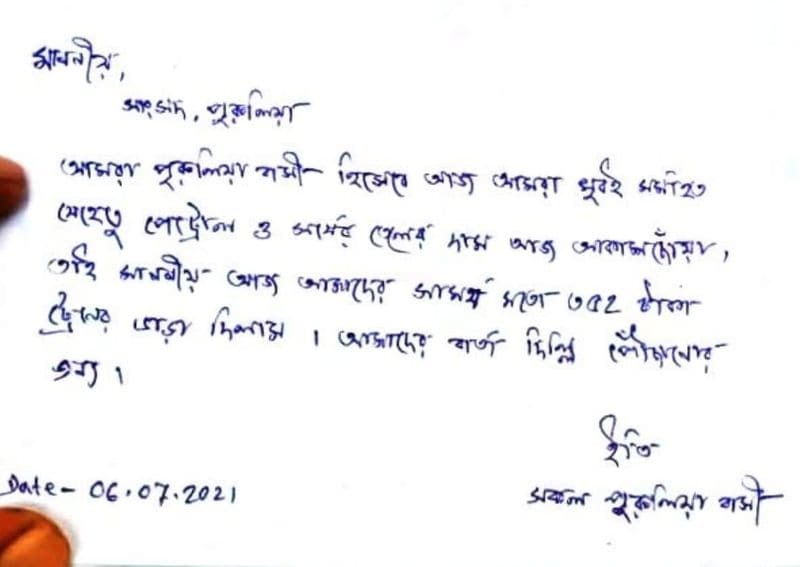 মাননীয়,
সাংসদ, পুরুলিয়া
আমরা পুরুলিয়া বাসী হিসেবে আজ আমরা খুবই মর্মাহত
যেহেতু পেট্রোল ও সর্ষের তেলের দাম আজ আকাশছোঁয়া,
তাই মাননীয় আজ আমাদের সামর্থ মতো ৩৫২ টাকা
ট্রেনের ভাড়া দিলাম । আমাদের বার্তা দিল্লি পৌঁছানোর
জন্য ।
ইতি
Date- 06.07.2021
সকল পুরুলিয়া বাসী